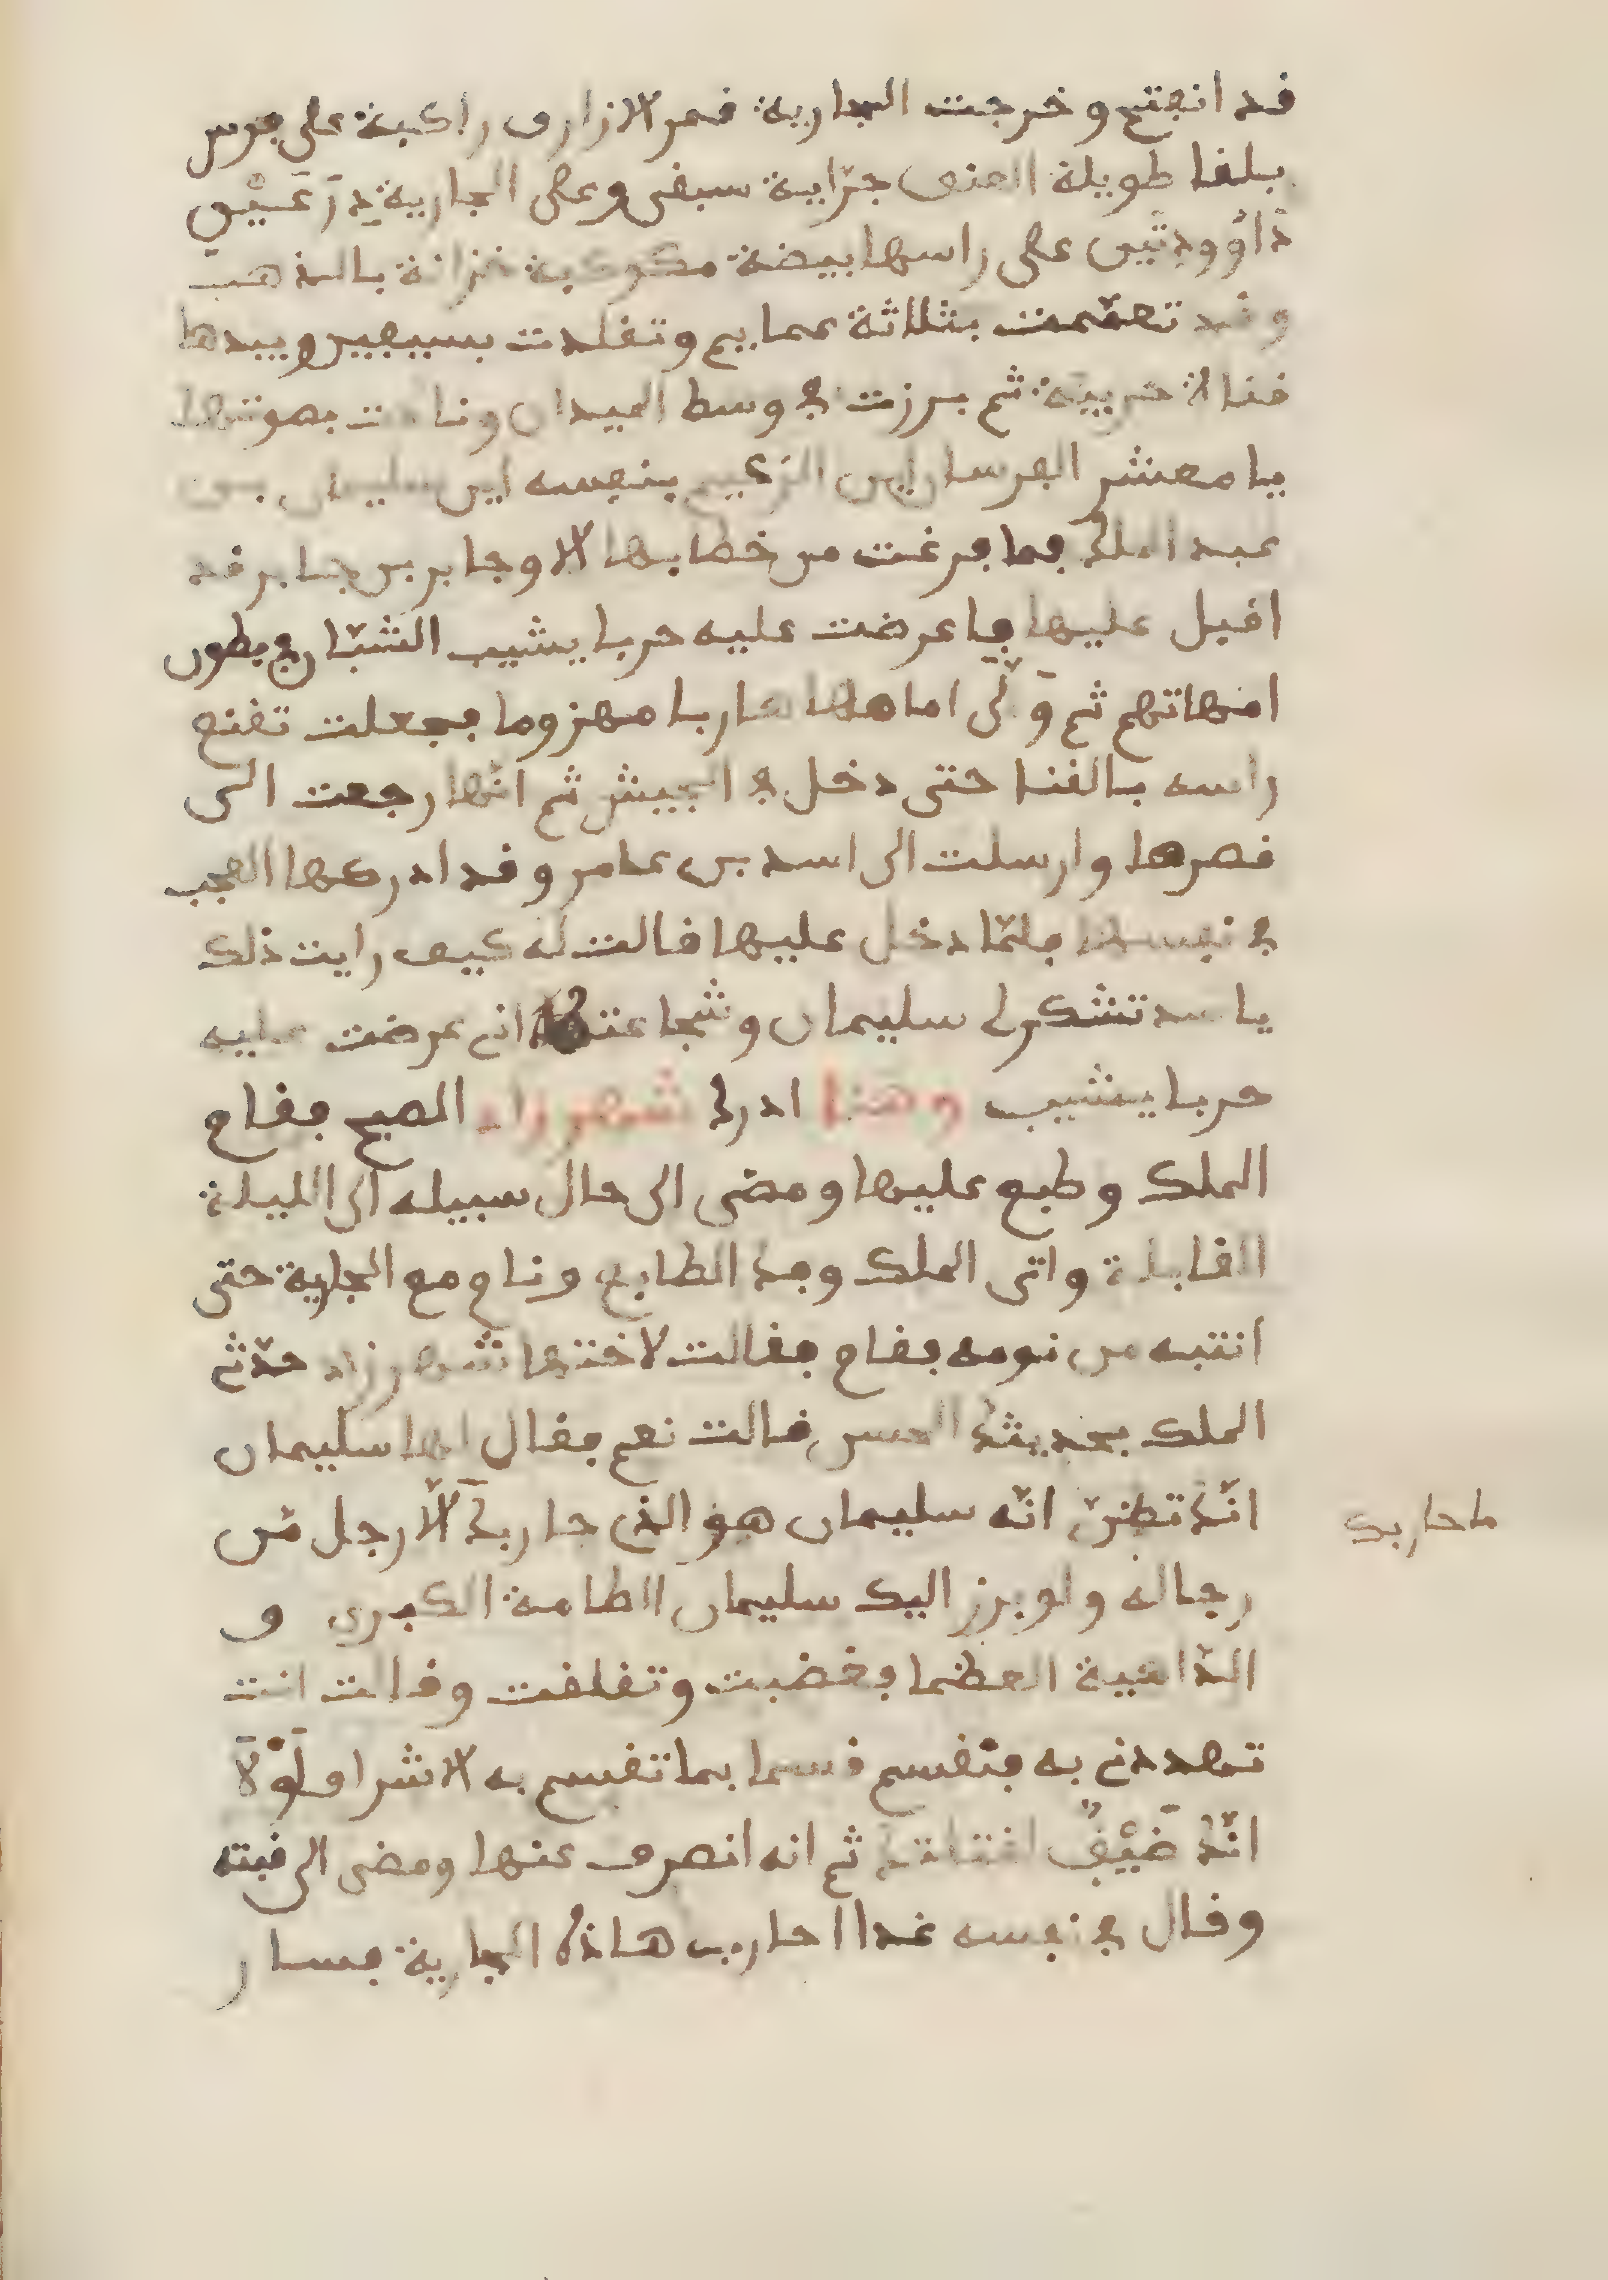 قد انفتح وخرجت الجارية قمر الازارى راكبة على فرس
بلقا طويلة العنق جرّاية سبقى وعلى الجارية دِرْعَيْن
دَاوُودِتَين على راسها بيضة مكوكبة خزانة بالذهب
وقد تعمّمت بثلاثة عمايم وتقلدت بسيفين وبيدها
قناة حربية ثم برزت في وسط الميدان ونادت بصوتها
يا معشر الفرسان اين الزعيم بنفسه اين سليمان بن
عبد الملك فما فرغت من خطابها الا وجابر بن جابر قد
اقبل عليها فاعرضت عليه حربا يشيب الشبّان في بطون
امهاتهم ثم وَلّى امامها هاربا مهزوما فجعلت تقنع
راسه بالقنا حتى دخل في الجيش ثم انّها رجعت الى
قصرها وارسلت الى اسد بن عامر وقد ادركها العجب
في نفسها فلمّا دخل عليها قالت له كيف رايت ذلك
يا سد تشكر لي سليمان وشجاعته اني عرضت عليه
حربا يشيب وهنا ادرك شهرزاد الصبح فقام
الملك وطبع عليها ومضى الى حال سبيله الى الليلة
القابلة واتى الملك وفك الطابع ونام مع الجارية حتى
انتبه من نومه فقام فقالت لاختها شهرزاد حدّثي
الملك بحديثك الحسن قالت نعم فقال لها سليمان
انّك تظنّ انّه سليمان هو الذي حاربكَ الّا رجل مّن
رجاله ولو برز اليك سليمان الطامة الكبرى و
الدّاهية العظما فغضبت وتقلقت وقالت انت
تهددني به فتقسم قسما بما تقسم به الاشراف لَوْلَا
انّك ضَيْفٌ لقتلتك ثم انه انصرف عنها ومضى الى قبته
وقال في نفسه غدا احارب هاذه الجارية فسار
ما حاربك